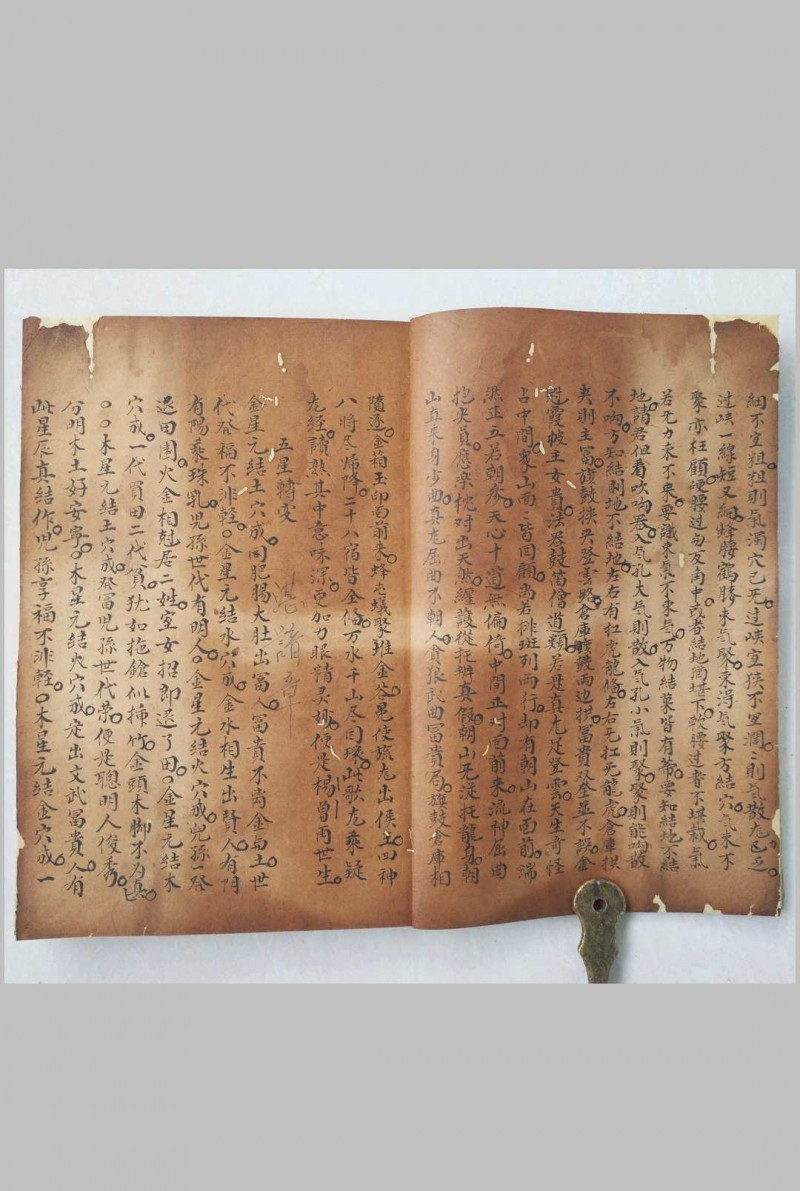 細不宜粗粗則氣濁穴已死过峡宜狭不宜濶〻則氣散尤已乏
过峡一線短又細蜂腰鶴膝来氣聚来淂氣聚方結穴氣来不
聚亦枉顧硬腰过句友南中或者結地局堪下軟腰过者不堪裁氣
若无力来不来要識来氣不来氣万物結菓皆有蒂要知結地不結
地請君但看吹响器入氣孔大氣則散入氣孔小氣則聚聚則能响散
不响方知結剩地不結地左右有扛虎龍俻左右无扛无龍虎倉庫拱
夹則主冨旗鼓挟夹登雲路倉庫旗鼓两边拱冨貴双登並不誤金
冠霞帔主女貴法器鼓笛僧道類若是真尤足登雲天生竒怪
占中間衆山面〻皆囬顧尚若排班列两行却有朝山在面前湍
然正立若朝彦天心十道无偏倚中間正对面前来流神屈曲
抱尖員應樂枕对出天然纒護從托辨真假朝山无従托龍身朝
山直来有少曲真尤屈曲不朝人貪狼武曲冨貴局旗鼓倉庫相
隨逐金箱玉印面前来蜂屯蟻聚堆金谷冕使旅尤出候土四神
八將尽烯降二十八宿皆全俻万水千山尽囬環此歌尤乘疑
尤经讀熟其中意味深更加力眼精灵妙便是楊曾再世生
五星轉变
金星元結土穴成囬肥腸大肚出冨人冨貴不尚金与土世
代癸福不非輕金星元結水穴成金水相生出賢人有阴
有陽乘珠乳児孫世代有明人金星元結火穴成兜孫一癸
退田園火金相尅居二姓室女招郎送了田金星元結木
穴成一代買田二代貧犹如拖鎗似挿竹金頭木脚不为真
木星元結土穴成癸冨児孫世代荣便是聰明人俊秀
分明木土好安寧木星元結火穴成定出文武冨貴人有
此星辰真結作児孫享福不非輕木星元結金穴成一